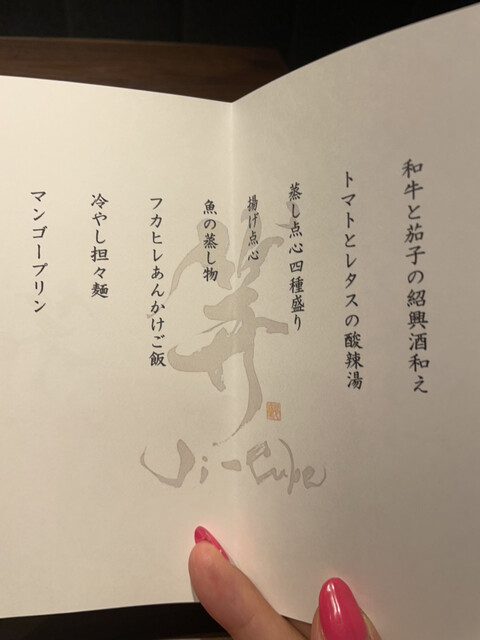 和牛と茄子の紹興酒和え
トマトとレタスの酸辣湯
蒸し点心四種盛り
揚げ点心
魚の蒸し物
フカヒレあんかけご飯
冷やし担々麺
マンゴープリン
Ji-Cube